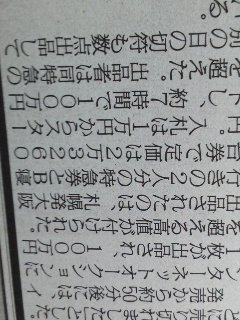 発売から約50分後には、イ
ンターネットオークションに
1枚が出品され、100万円
を超える高値が付けられた。
出品されたのは、札幌発大阪
行きの2人分の特急券とB寝
台券で定価は2万3260
円。入札は1万円からスター
トし、約7時間で100万円
を超えた。出品者は同特急の
別の日の切符も数点出品して
る。